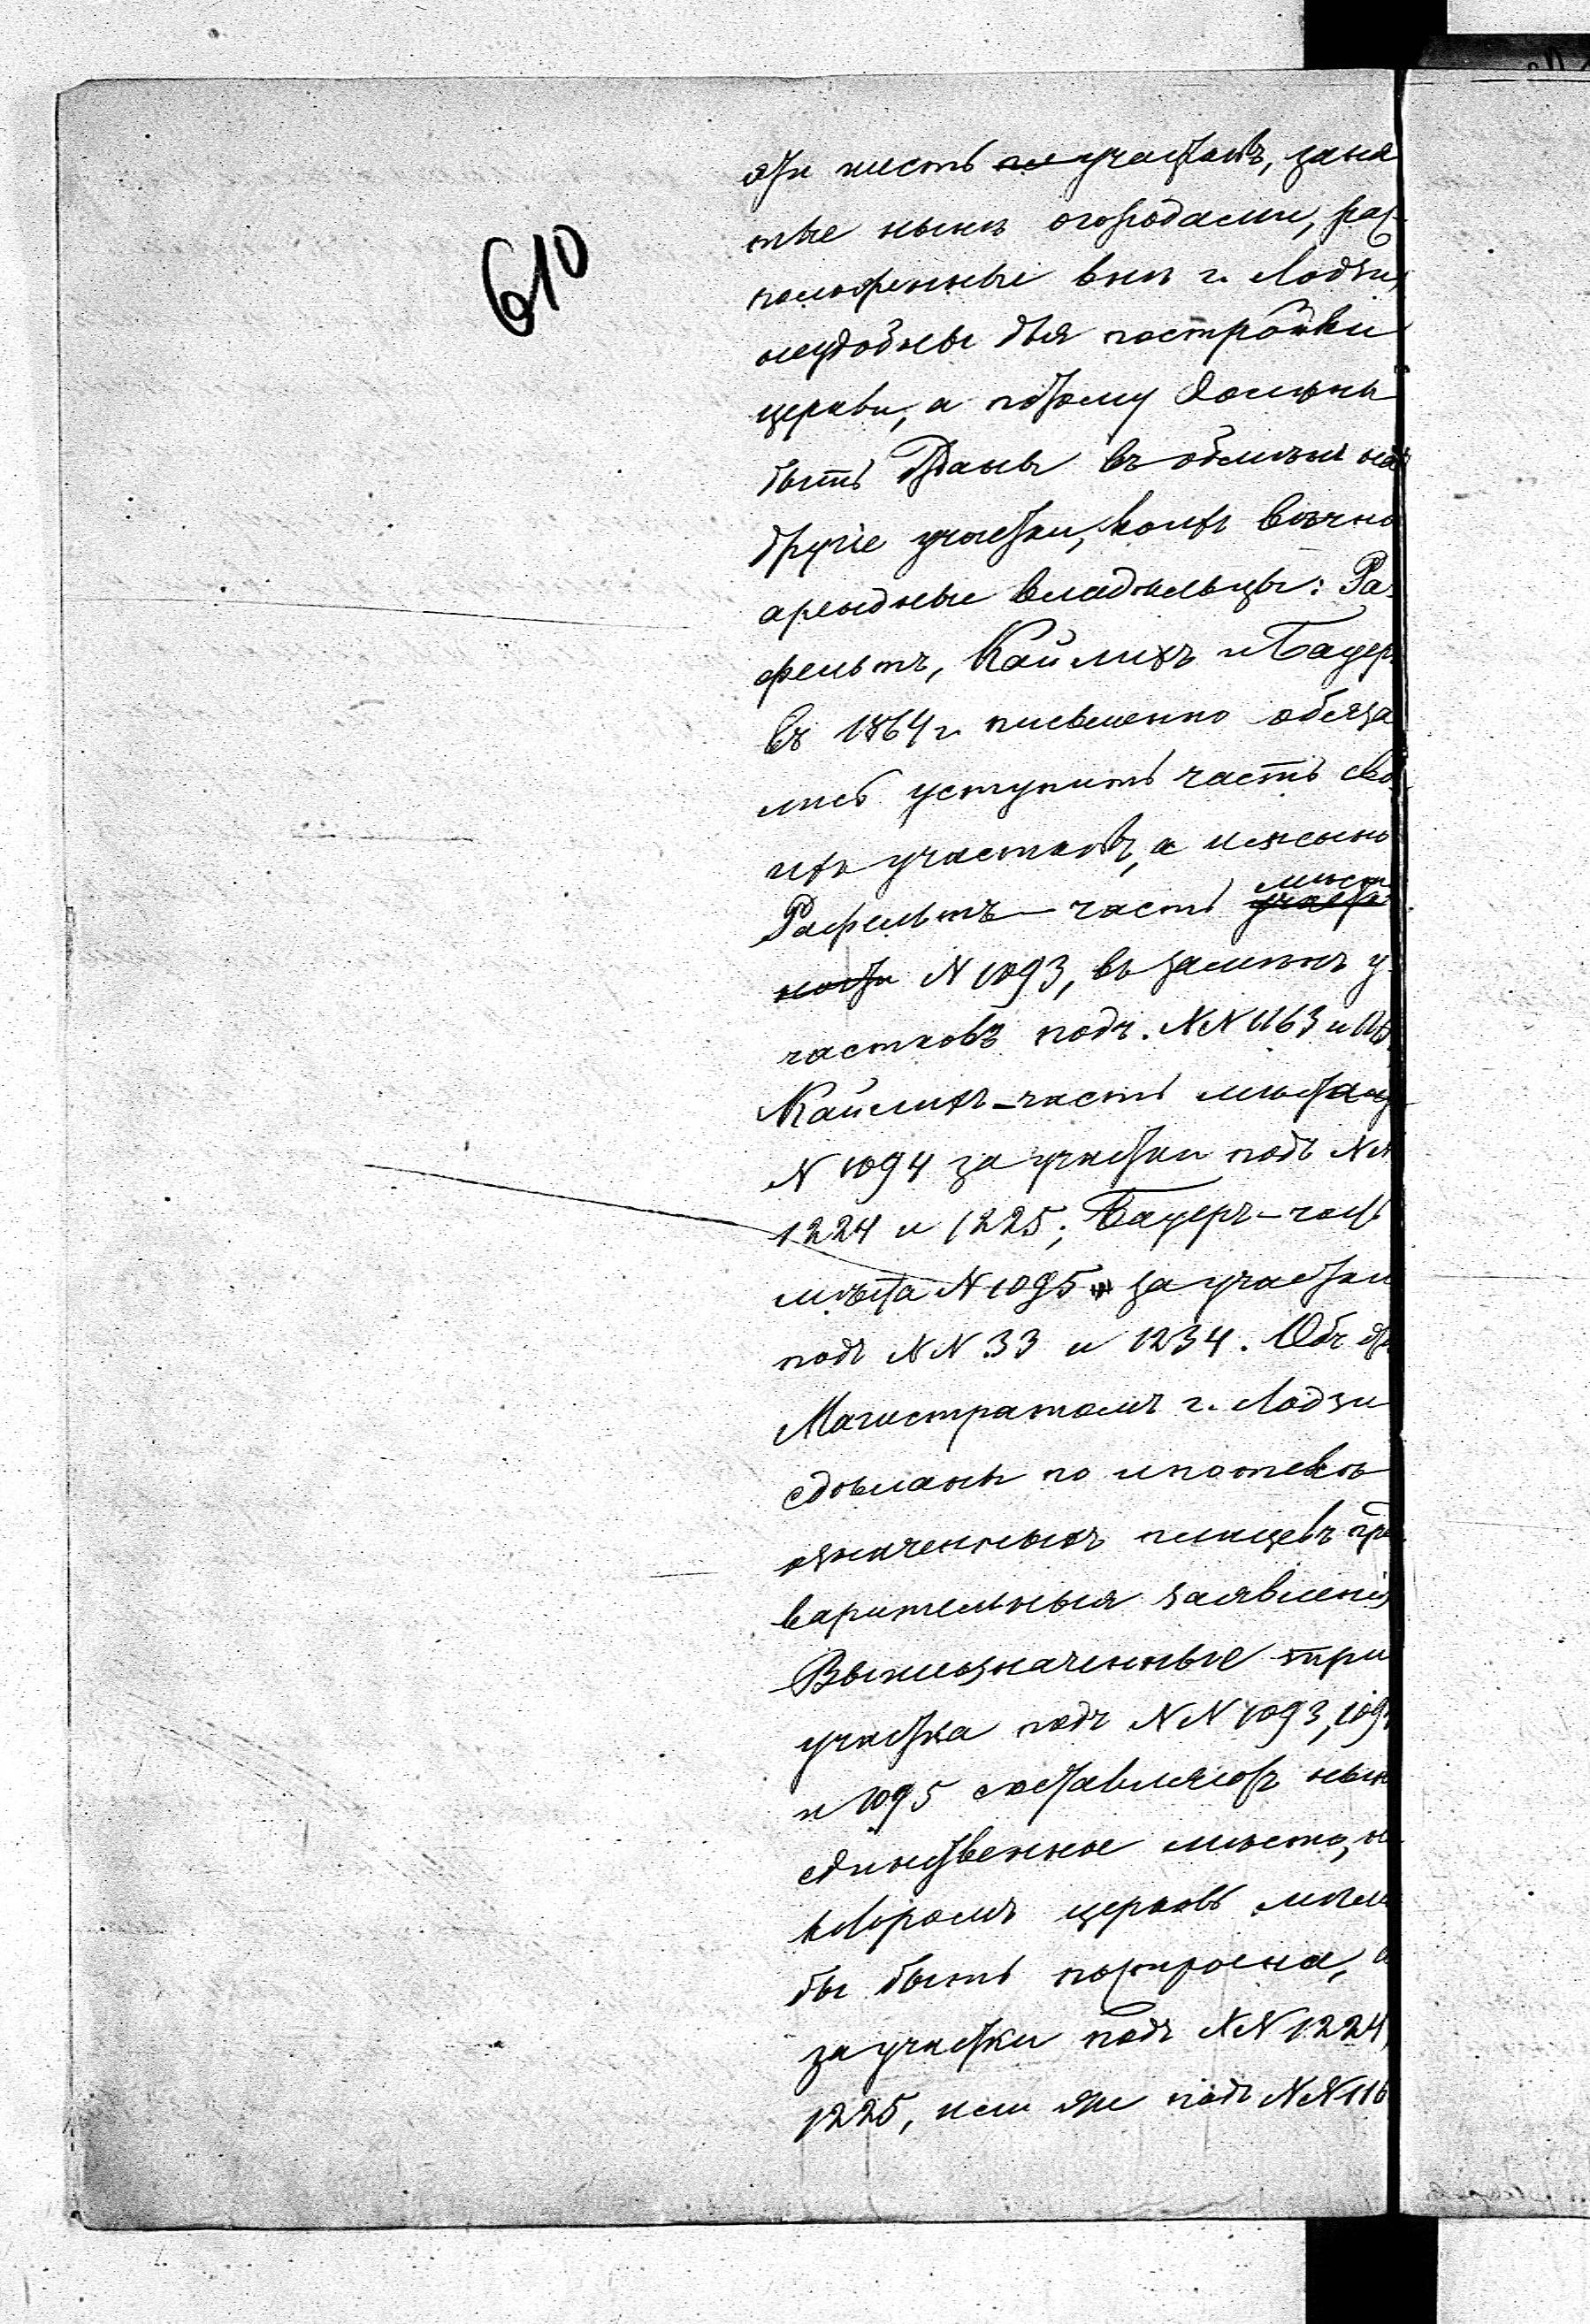 610
эти шесть участковъ, заня
тые нынѣ огородами, рас-
положенные внѣ г. Лодзи,
неудобны для постройки
церкви, а потому должны
быть отданы въ обменъ на
другіе участки, коихъ вѣчно
арендные владѣльцы: Ра-
фельтъ, Каймихъ и Бауеръ
въ 1864 г. письменно обяза
лись уступить часть сво
ихъ участковъ, а именно
Рафельтъ — часть мѣст
участ
ка N 1093, въ замѣнъ у-
частковъ подъ NN 1163 и 116
Каймихъ — часть мѣста
N 1094 за участки подъ NN
1224 и 1225; Бауеръ — часть
мѣста N 1095 за участки
подъ NN 33 и 1234. Объ эт
Магистратомъ г. Лодзи
сдѣланы по ипотекѣ
означенныхъ плацевъ пред
варительныя заявленія
Вышеозначенные три
участка подъ NN 1093, 1094
и 1095 составляютъ нынѣ
единственное мѣсто, на
которомъ церковь могла
бы быть построена, а
за участки подъ NN 1224,
1225, или же подъ NN 116